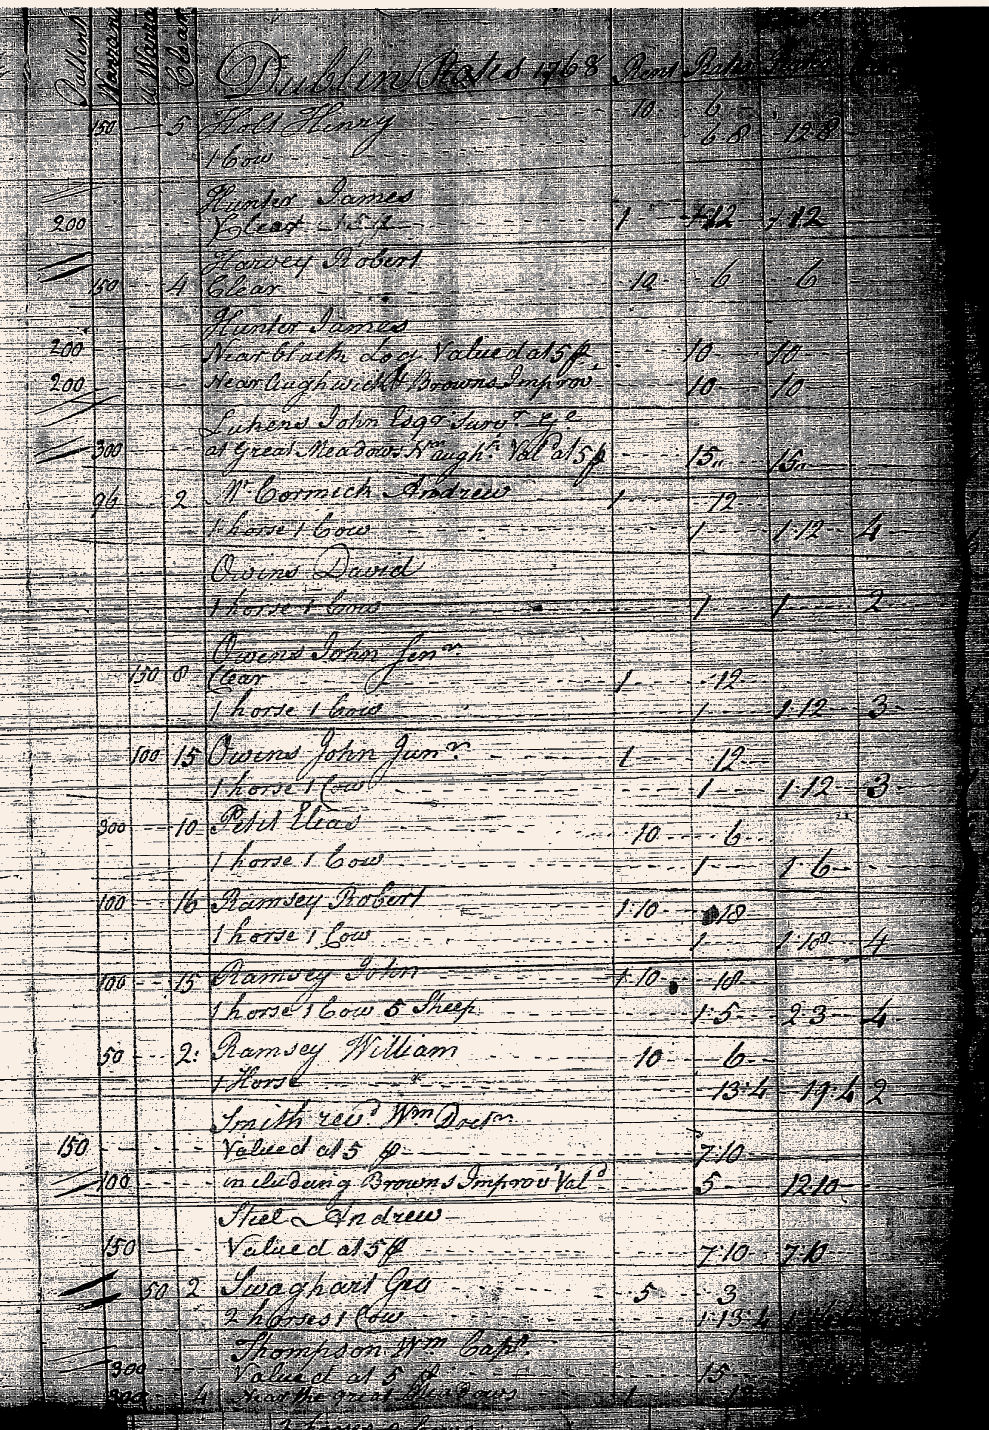 Pattent Warrant Clear Dublin Rates 1768 Rent Rates
150 5 Holt Henry 10 6
1 Cow 6 8 12 8
Hunter James
200 Clear 1 12 12
Harvey Robert
50 4 Clear 10 6 6
Hunter James
200 Near black Log Valued at 5 p 10 10
200 Near Aughwick & Browns Improv 10 10
Lukens John Esqr Survr Ge
300 at Great Meadows Nr Aughk Val at 5 p 15 15
96 2 Mc Cormick Andrew 1 12
1 horse 1 Cow 1 1 12 4
Owens David
1 horse 1 Cow 1 1 2
Owens John Senr
150 8 Clear 1 12
1 horse 1 Cow 1 1 12 3
100 15 Owens John Junr 1 12
1 horse 1 Cow 1 1 12 3
300 10 Petit Elias 10 6
1 horse 1 Cow 1 1 6
100 16 Ramsey Robert 1 10 18
1 horse 1 Cow 1 1 18 4
100 15 Ramsey John 1 10 18
1 horse 1 Cow 5 Sheep 1 5 2 3 4
50 2 Ramsey William 10 6
1 Horse 13 4 19 4 2
Smith revd Wm Doctr
150 Valued at 5 p 7 10
100 including Browns Improv Vald 5 12 10
Steel Andrew
150 Valued at 5 p 7 10 7 10
50 2 Swaghart Geo 5 3
2 horses 1 Cow 1 13 4
Thompson Wm Capt.
300 Valued at 5 p 15
300 4 Near the great Meadows 1 12